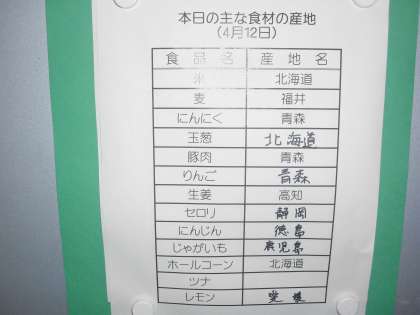 本日の主な食材の産地
(4月12日)
食品名 産地名
米 北海道
麦 福井
にんにく 青森
玉葱 北海道
豚肉 青森
りんご 青森
生姜 高知
セロリ 静岡
にんじん 徳島
じゃがいも 鹿児島
ホールコーン 北海道
ツナ
レモン 愛媛